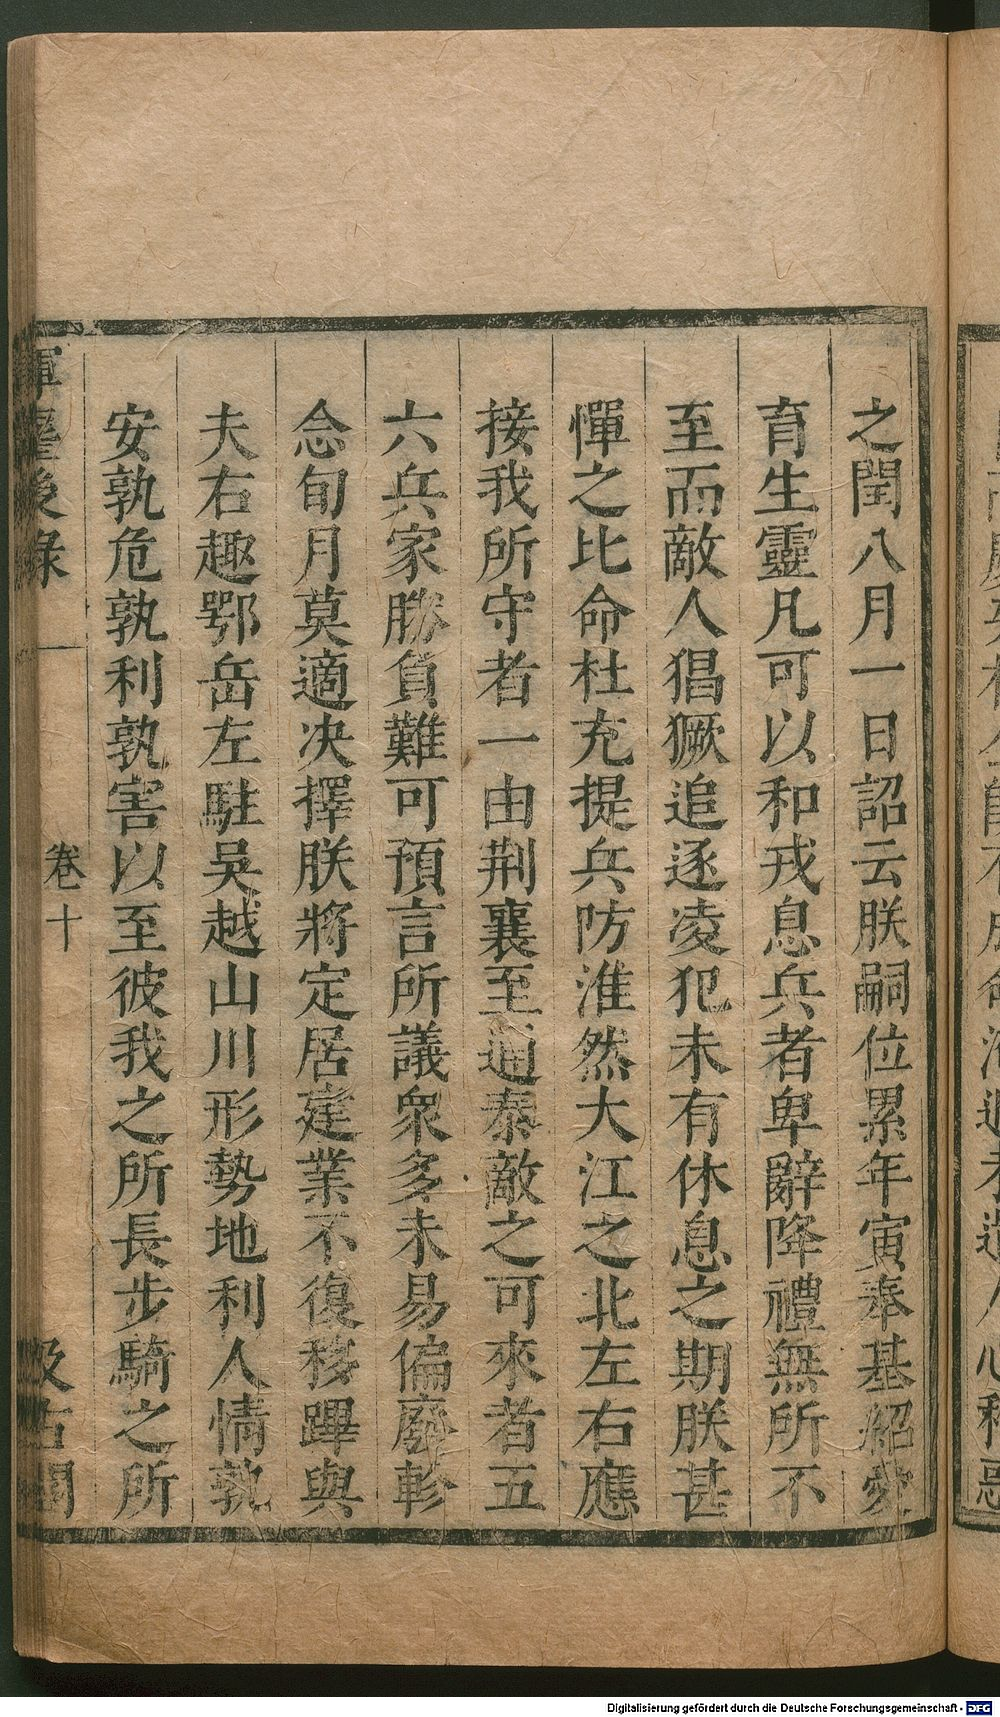 之閏八月一日詔云朕嗣位累年寅奉基紹愛
育生靈凡可以和戎息兵者卑辭降禮無所不
至而敵人猖獗追逐凌犯未有休息之期朕甚
憚之比命杜充提兵防淮然大江之北左右應
接我所守者一由荆襄至通泰敵之可來者五
六兵家勝負難可預言所議衆多未易偏廢軫
念旬月莫適决擇朕將定居建業不復移蹕與
夫右趣鄂岳左駐吳越山川形勢地利人情孰
安孰危孰利孰害以至彼我之所長步騎之所
後錄
卷十
汲古閣
Digitalisierung gefördert durch die Deutsche Forschungsgemeinschaft - DFG